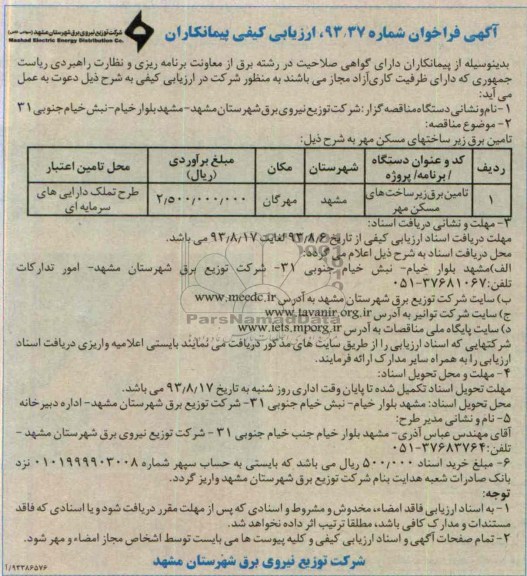 آگهی فراخوان شماره ۹۳.۳۷، ارزیابی کیفی پیمانکاران
شرکت توزیع نیروی برق شهرستان مشهد (سهامی خاص)
Mashhad Electric Energy Distribution Co.
بدینوسیله از پیمانکاران دارای گواهی صلاحیت در رشته برق از معاونت برنامه ریزی و نظارت راهبردی ریاست
جمهوری که دارای ظرفیت کاری آزاد مجاز می باشند به منظور شرکت در ارزیابی کیفی به شرح ذیل دعوت به عمل
می آید:
۱- نام و نشانی دستگاه مناقصه گزار: شرکت توزیع نیروی برق شهرستان مشهد- مشهد بلوار خیام- نبش خیام جنوبی ۳۱
۲- موضوع مناقصه:
تامین برق زیر ساختهای مسکن مهر به شرح ذیل:
ردیف | کد و عنوان دستگاه / برنامه/ پروژه | شهرستان | مکان | مبلغ برآوردی (ریال) | محل تامین اعتبار
۱ | تامین برق زیرساخت های مسکن مهر | مشهد | مهرگان | ۲٫۵۰۰٫۰۰۰٫۰۰۰ | طرح تملک دارایی های سرمایه ای
۳- مهلت و نشانی دریافت اسناد:
مهلت دریافت اسناد ارزیابی کیفی از تاریخ ۹۳٫۸٫۶ لغایت ۹۳٫۸٫۱۷ می باشد.
محل دریافت اسناد به شرح ذیل اعلام می گردد:
الف)مشهد بلوار خیام- نبش خیام جنوبی ۳۱- شرکت توزیع برق شهرستان مشهد- امور تدارکات
تلفن: ۳۷۶۸۱۰۶۷-۰۵۱
ب) سایت شرکت توزیع برق شهرستان مشهد به آدرس www.meedc.ir
ج) سایت شرکت توانیر به آدرس www.tavanir.org.ir
د) سایت پایگاه ملی مناقصات به آدرس www.iets.mporg.ir
شرکتهایی که اسناد ارزیابی را از طریق سایت های مذکور دریافت می نمایند بایستی اعلامیه واریزی دریافت اسناد
ارزیابی را به همراه سایر مدارک ارائه فرمایند.
۴- مهلت و محل تحویل اسناد:
مهلت تحویل اسناد تکمیل شده تا پایان وقت اداری روز شنبه به تاریخ ۹۳٫۸٫۱۷ می باشد.
محل تحویل اسناد: مشهد بلوار خیام- نبش خیام جنوبی ۳۱- شرکت توزیع برق شهرستان مشهد- اداره دبیرخانه
۵- نام و نشانی مدیر طرح:
آقای مهندس عباس آذری- مشهد بلوار خیام جنب خیام جنوبی ۳۱ - شرکت توزیع نیروی برق شهرستان مشهد -
تلفن: ۳۷۶۸۳۷۶۴-۰۵۱
۶- مبلغ خرید اسناد ۵۰۰٫۰۰۰ ریال می باشد که بایستی به حساب سپهر شماره ۰۱۰۱۹۹۹۹۰۳۰۰۸ نزد
بانک صادرات شعبه هدایت بنام شرکت توزیع برق شهرستان مشهد واریز گردد.
توجه:
۱- به اسناد ارزیابی فاقد امضاء، مخدوش و مشروط و اسنادی که پس از مهلت مقرر دریافت شود و یا اسنادی که فاقد
مستندات و مدارک کافی باشد، مطلقا ترتیب اثر داده نخواهد شد.
۲- تمام صفحات آگهی و اسناد ارزیابی کیفی و کلیه پیوست ها می بایست توسط اشخاص مجاز امضاء و مهر شود.
شرکت توزیع نیروی برق شهرستان مشهد
ParsNamadData